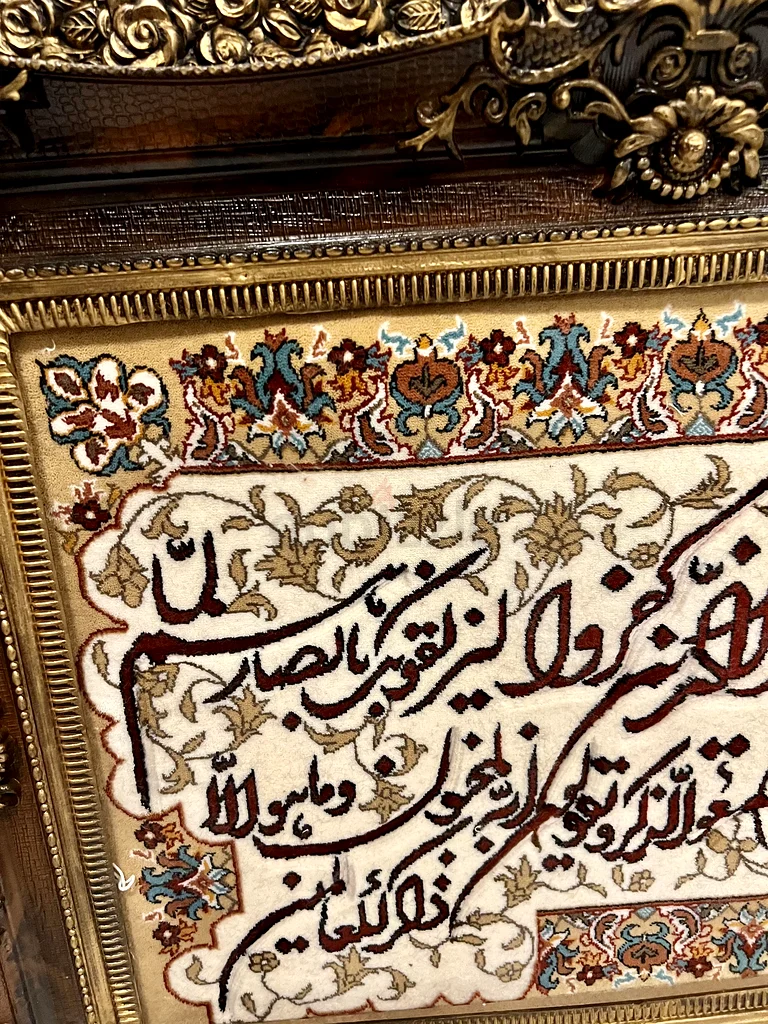 الذين كفروا ليزلقونك بابصارهم لمّا
سمعوا الذّكر ويقولون انّه لمجنون وما هو الّا
ذكر للعالمين